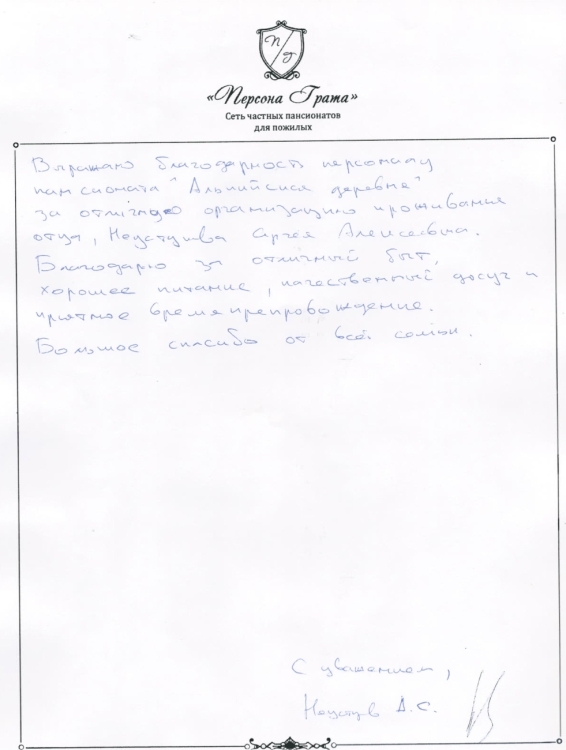 П/Д
«Персона Грата»
Сеть частных пансионатов
для пожилых
Выражаю благодарность персоналу
пансионата "Альпийская деревня"
за отличную организацию проживания
отца, Сергея Алексеевича.
Благодарю за отличный быт,
хорошее питание, качественный досуг и
приятное времяпрепровождение.
Большое спасибо от всей семьи.
С уважением,
А.С.